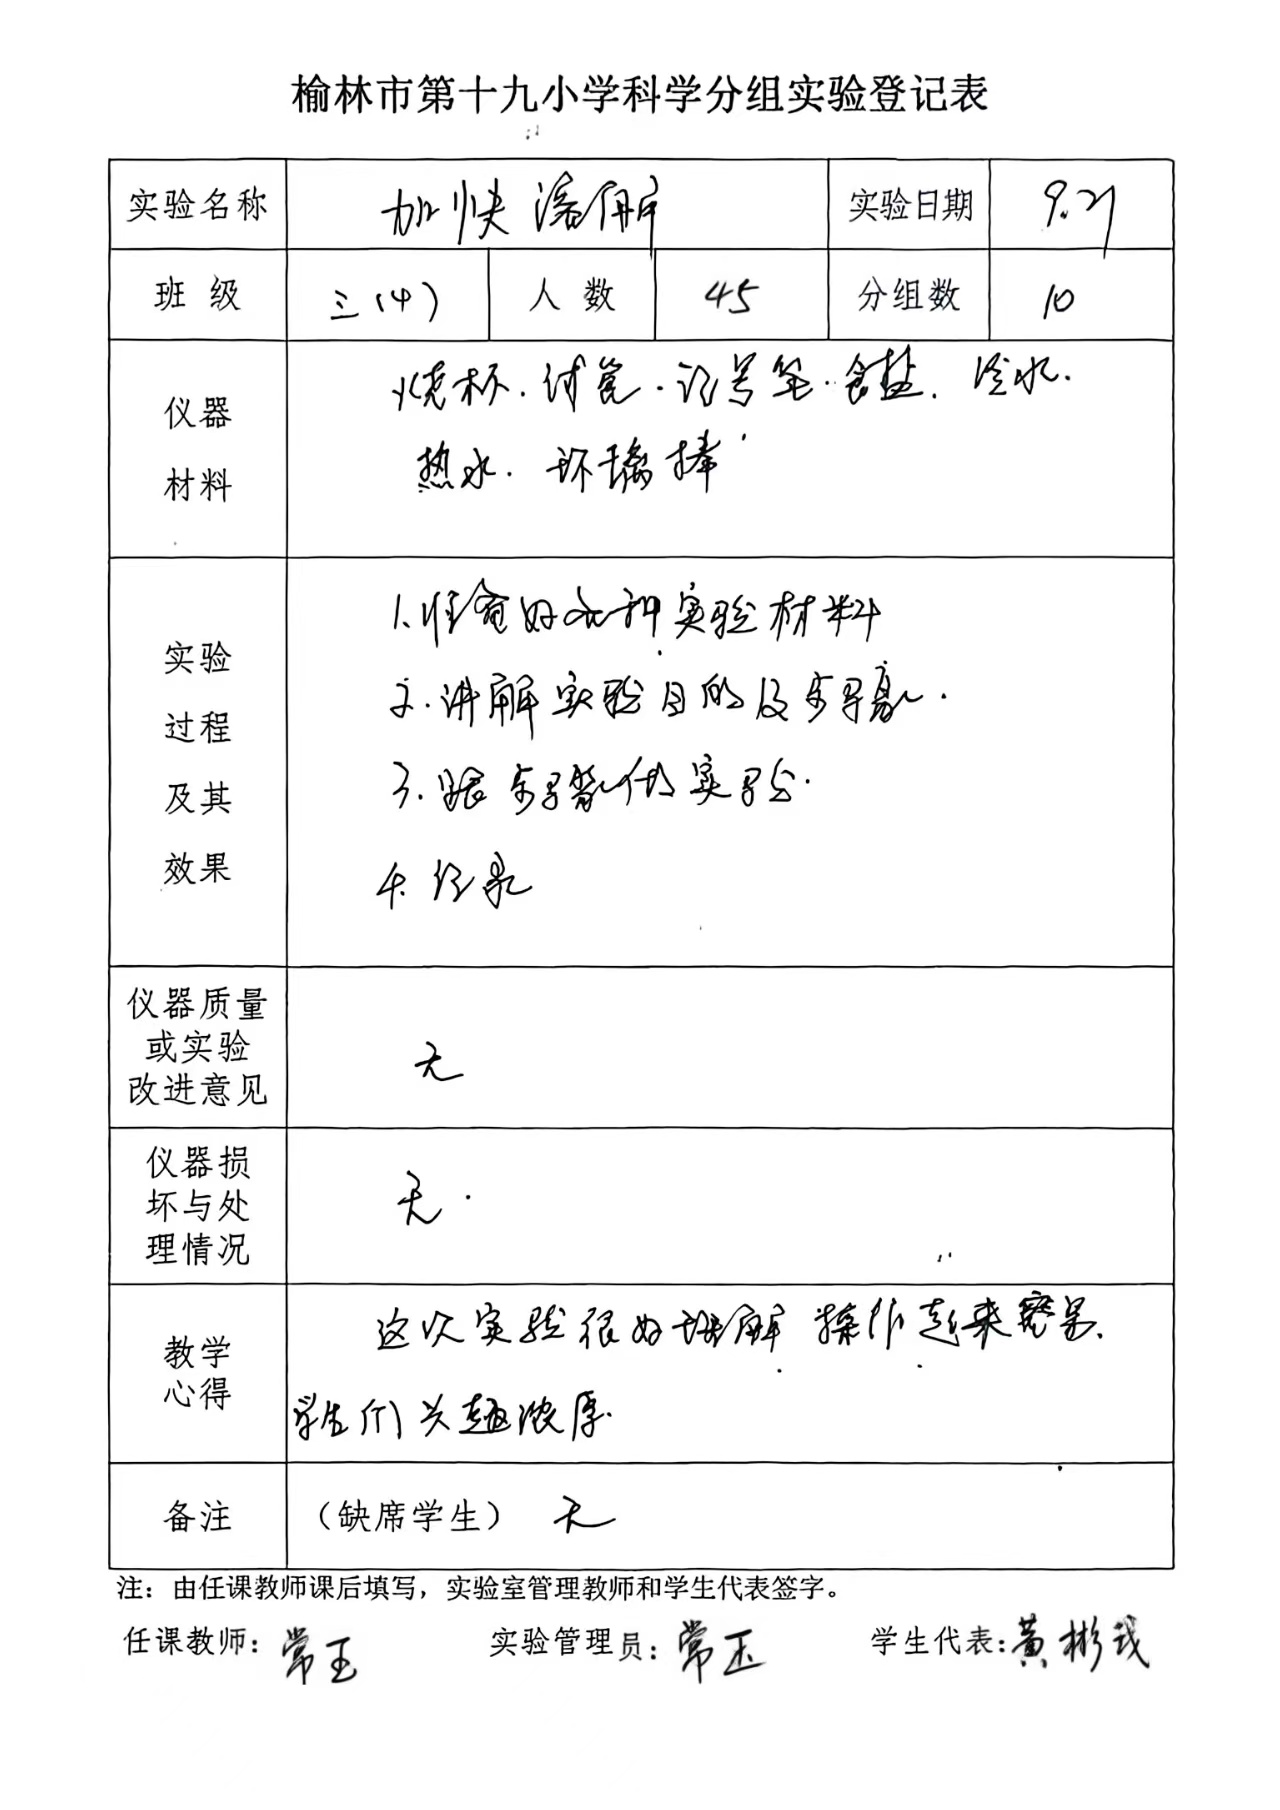 榆林市第十九小学科学分组实验登记表
实验名称 加快溶解 实验日期 9.21
班级 三(4) 人数 45 分组数 10
仪器材料
烧杯.试管.记号笔.食盐.冷水.
热水.玻璃棒
实验过程及其效果
1.准备好各种实验材料
2.讲解实验目的及步骤.
3.跟步骤做实验.
4.记录
仪器质量或实验改进意见
无
仪器损坏与处理情况
无.
教学心得
这次实验很好理解 操作起来容易.
学生们兴趣浓厚.
备注 （缺席学生） 无
注：由任课教师课后填写，实验室管理教师和学生代表签字。
任课教师：常玉 实验管理员：常玉 学生代表：黄彬